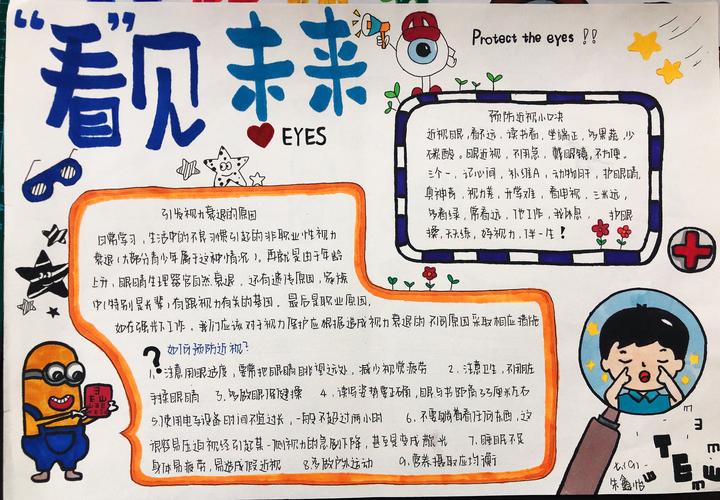 “看见”未来
EYES
Protect the eyes !!
预防近视小口诀
近视眼,看不远,读书看,坐端正,多果蔬,少
碳酸。眼近视,不用急,戴眼镜,不方便。
三个一,记心间,补维A,动物肝,护眼睛,
真神奇,视力差,升学难,看电视,三米远,
多看绿,常看远,用眼
操,天天练,好视力,伴一生!
引发视力衰退的原因
日常学习,生活中的不良习惯引起的非职业性视力
衰退(大部分青少年属于这种情况)。再就是由于年龄
上升,眼睛生理器官自然衰退,还有遗传原因,家族
中(特别是长辈)有跟视力有关的基因。最后是职业原因,
如在强光下工作,我们应该对于视力保护应根据造成视力衰退的不同原因采取相应措施
?如何预防近视?
1、注意用眼适度,要常把眼睛眺望远处,减少视觉疲劳 2、注意卫生,不用脏
手揉眼睛 3、多做眼保健操 4、读写姿势要正确,眼与书距离33厘米左右
5、使用电子设备时间不宜过长,一般不超过两小时 6、不要躺着看任何东西,这
很容易压迫视神经引起某一侧视力的急剧下降,甚至是变成散光 7、睡眠不足
身体易疲劳,易造成假近视 8、多做户外运动 9、营养摄取应均衡